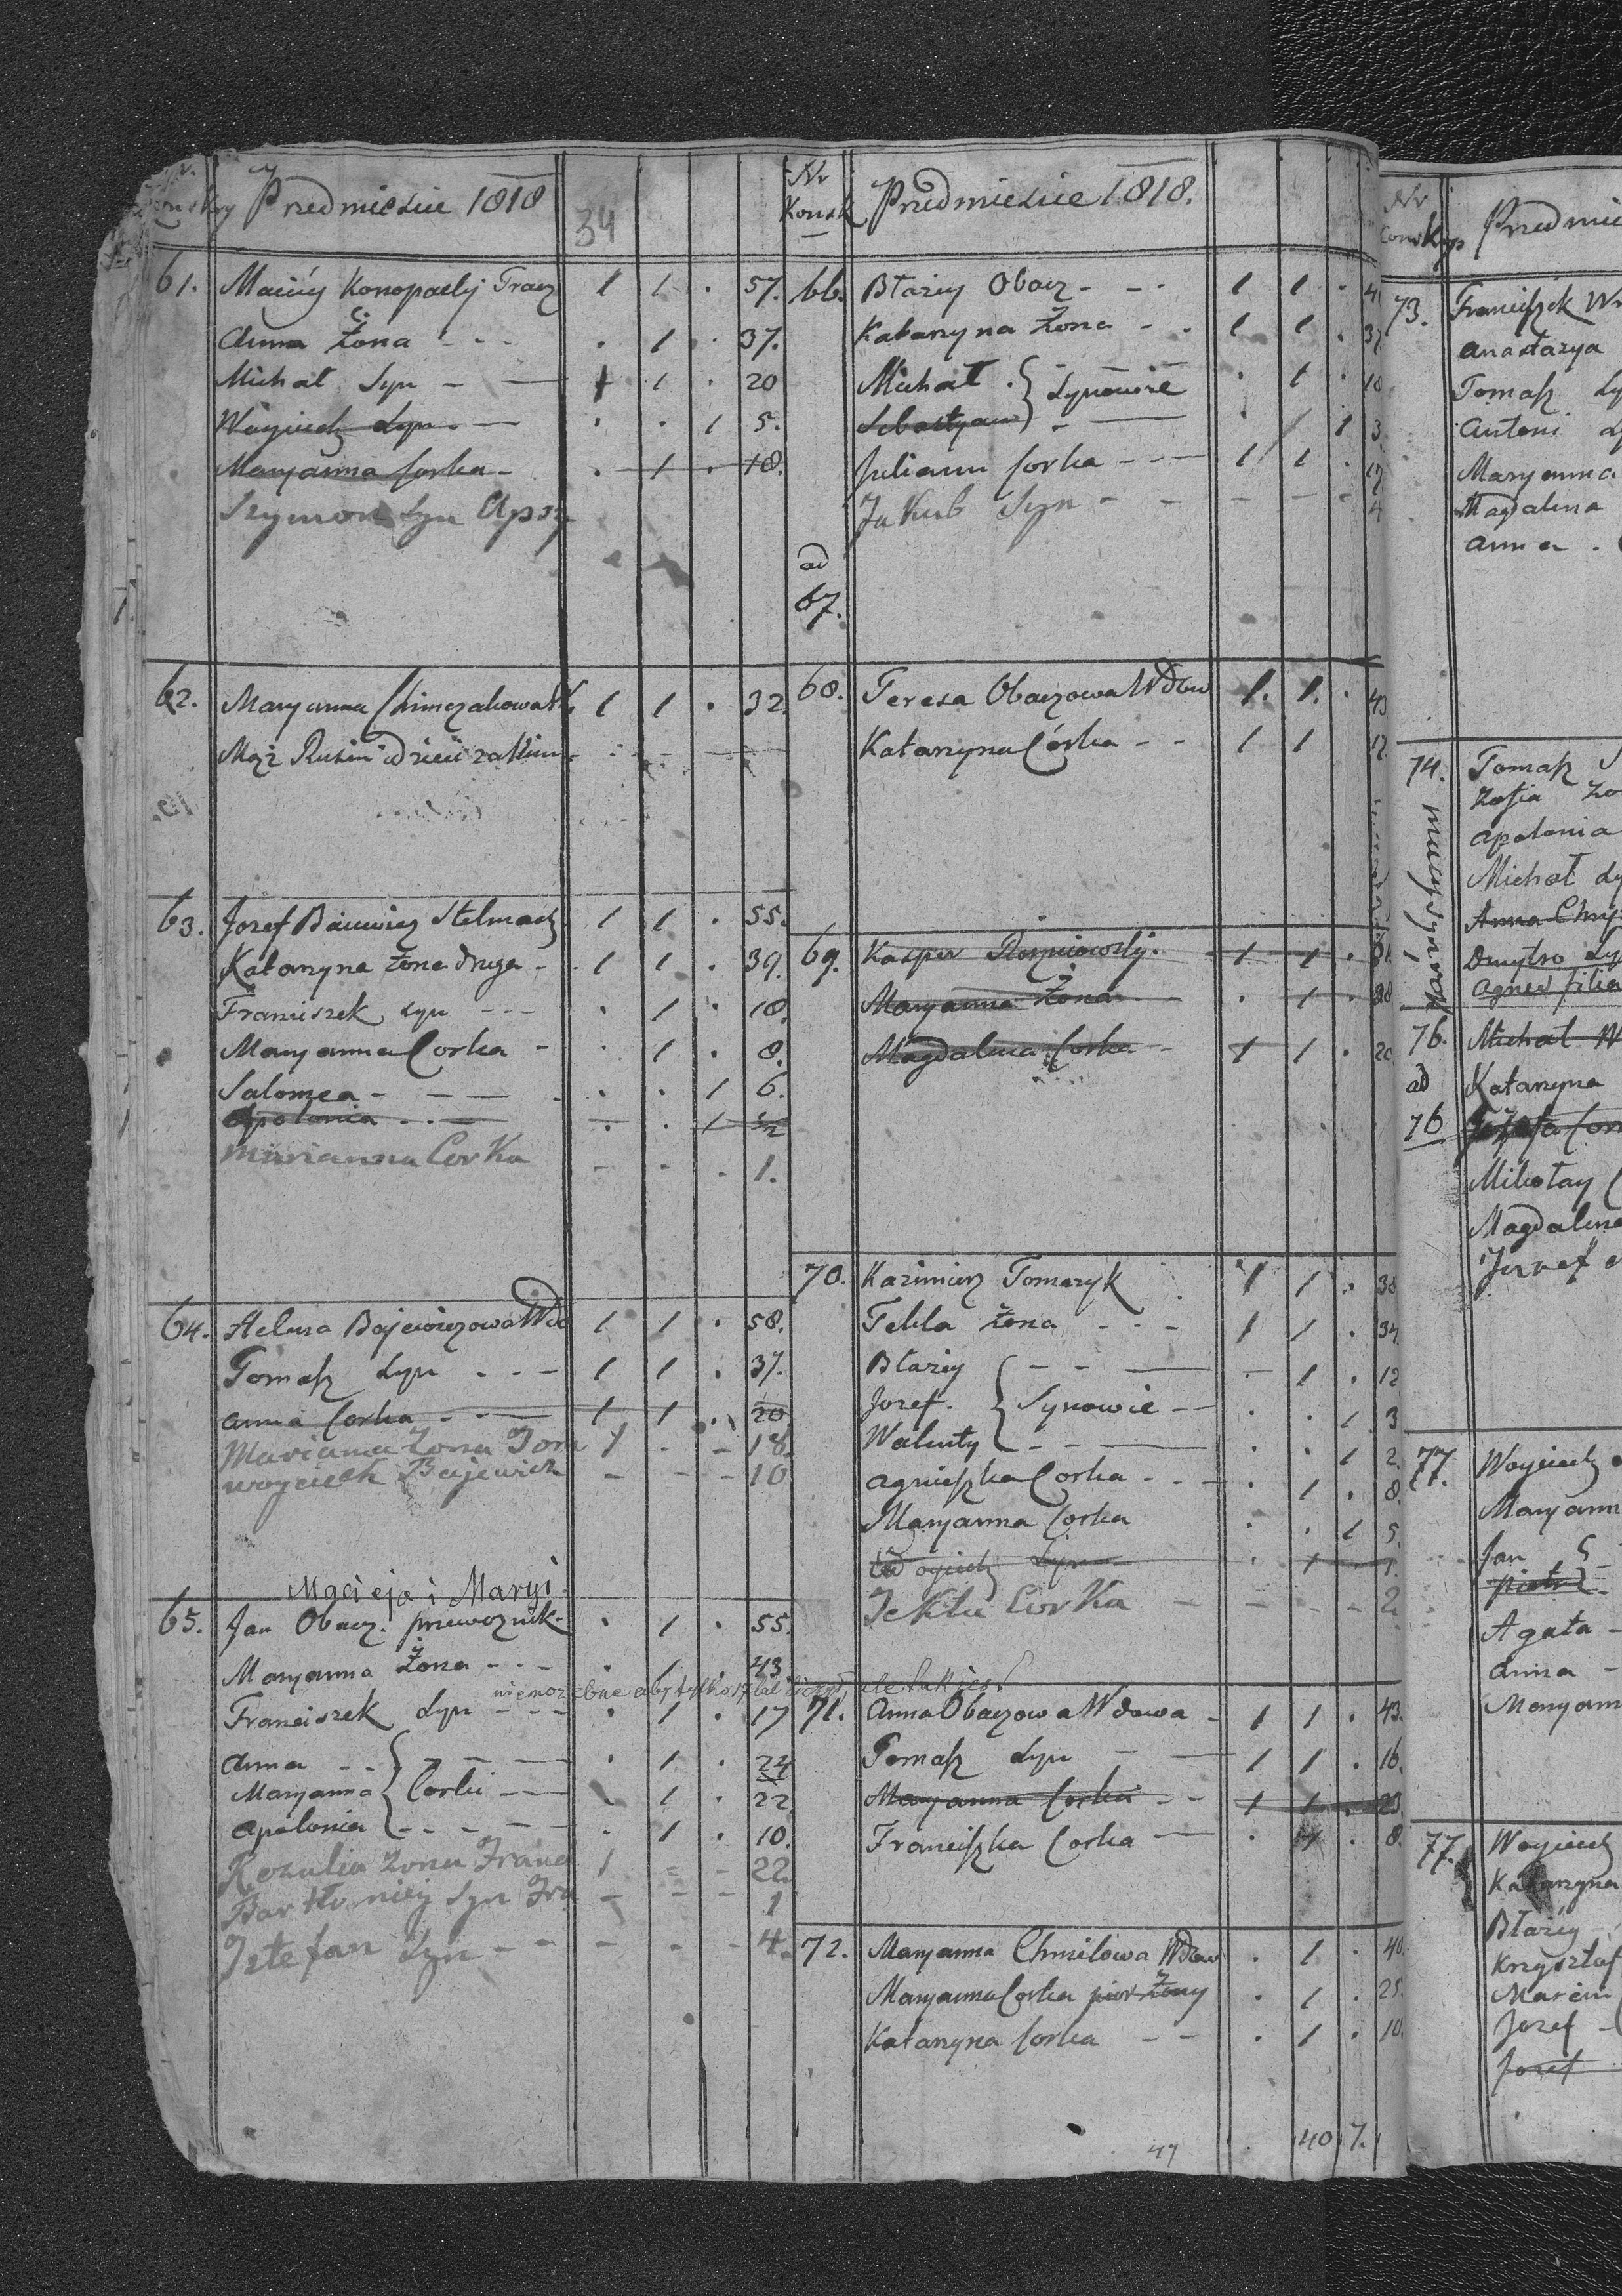 Predmiescie 1818
34
61. Maciey Konopacky Tracz 1 1 . 57.
Anna Żona - - - . 1 . 37.
Michał Syn - — 1 1 . 20
Woyciech Syn - — . . 1 5.
Maryanna Corka - . 1 . 18.
Szymon Syn
62. Maryanna 1 1 . 32.
Mąż Rusin i dzieci
63. Jozef Baiewicz Stelmach 1 1 . 55.
Katarzyna Żona druga - 1 1 . 39.
Franciszek syn - - - . 1 . 18.
Maryanna Corka - . 1 . 8.
Salomea - - — . . 1 6.
Apolonia - - — . . 1 1/2
Marianna Corka - - . 1.
64. Helena Bajewiczowa Wdo 1 1 . 58.
Tomasz Syn - - - 1 1 . 37.
Anna Corka - - — 1 1 . 20
Marianna Zona Tom 1 - - 18.
woyciech Bajewich - - - 10
Macieja i Maryi
65. Jan Obacz. przewoznik - . 1 . 55.
Maryanna Żona - - - . 1 . 43
nie moz ebne aby tylko 17 lat liczył ale tak jest
Franciszek Syn - - - . 1 . 17
Anna - - . 1 . 24
Maryanna } Corki - — . 1 . 22
Apolonia - - - — . 1 . 10.
Rozalia zona Franc 1 - - 22
Bartłomiej Syn Fra - - - 1
Sztefan Syn - - - - - 4.
Nr Konsk Predmiescie 1818.
66. Błażey Obacz - - - 1 1 . 4
Katarzyna Żona - . 1 1 . 3
Michał } Synowie . 1 . 18
Sebastyan - — . 1 3.
Juliann Corka - - — 1 1 . 17
Jakub Syn - - - - - 4
ad
67.
68. Teresa Obaczowa Wdow 1. 1. . 43
Katarzyna Córka - - 1 1 17.
69. Kasper 1 1 .
Maryanna Żona . 1 . 28
Magdalena Corka - 1 1 . 20
70. Kazimierz Tomazyk 1 1 . 38
Tekla Żona - - - 1 1 . 34
Błażey - - — - 1 . 12
Jozef. } Synowie - - . . 1 3
Walenty - - — . . 1 2.
Agnieszka Corka - - - . 1 . 8.
Maryanna Corka . . 1 5.
Woyciech Syn . 1 1.
Tekla Corka - - - - 2
71. Anna Obaczowa Wdowa - 1 1 . 43.
Tomasz Syn - — 1 1 . 16.
Maryanna Corka - - 1 1 . 23.
Franciszka Corka — . 1 . 8.
72. Maryanna Chmilowa Wdow . 1 . 40
Maryanna Corka pier: Żony . 1 . 25.
Katarzyna Corka - - . 1 . 10.
47 40 7.
Nr Conskyp Predmie
73. Franciszek
Anastazya
Tomasz Sy
Antoni Sy
Maryanna
Magdalena
Anna .
74. Tomasz
Zofia Żo
Apolonia
Michał Sy
Anna
Dmytro Sy
Agnes filia
76. Michał W
ad Katarzyna
76 Jozefa Cor
Mikołay
Magdalena
Jozef
77. Woyciech
Maryann
Jan
Piotr
Agata -
Anna -
Maryann
77. Woyciech
Katarzyna
Błażey -
Krzysztof
Marcin
Jozef -
Jozef